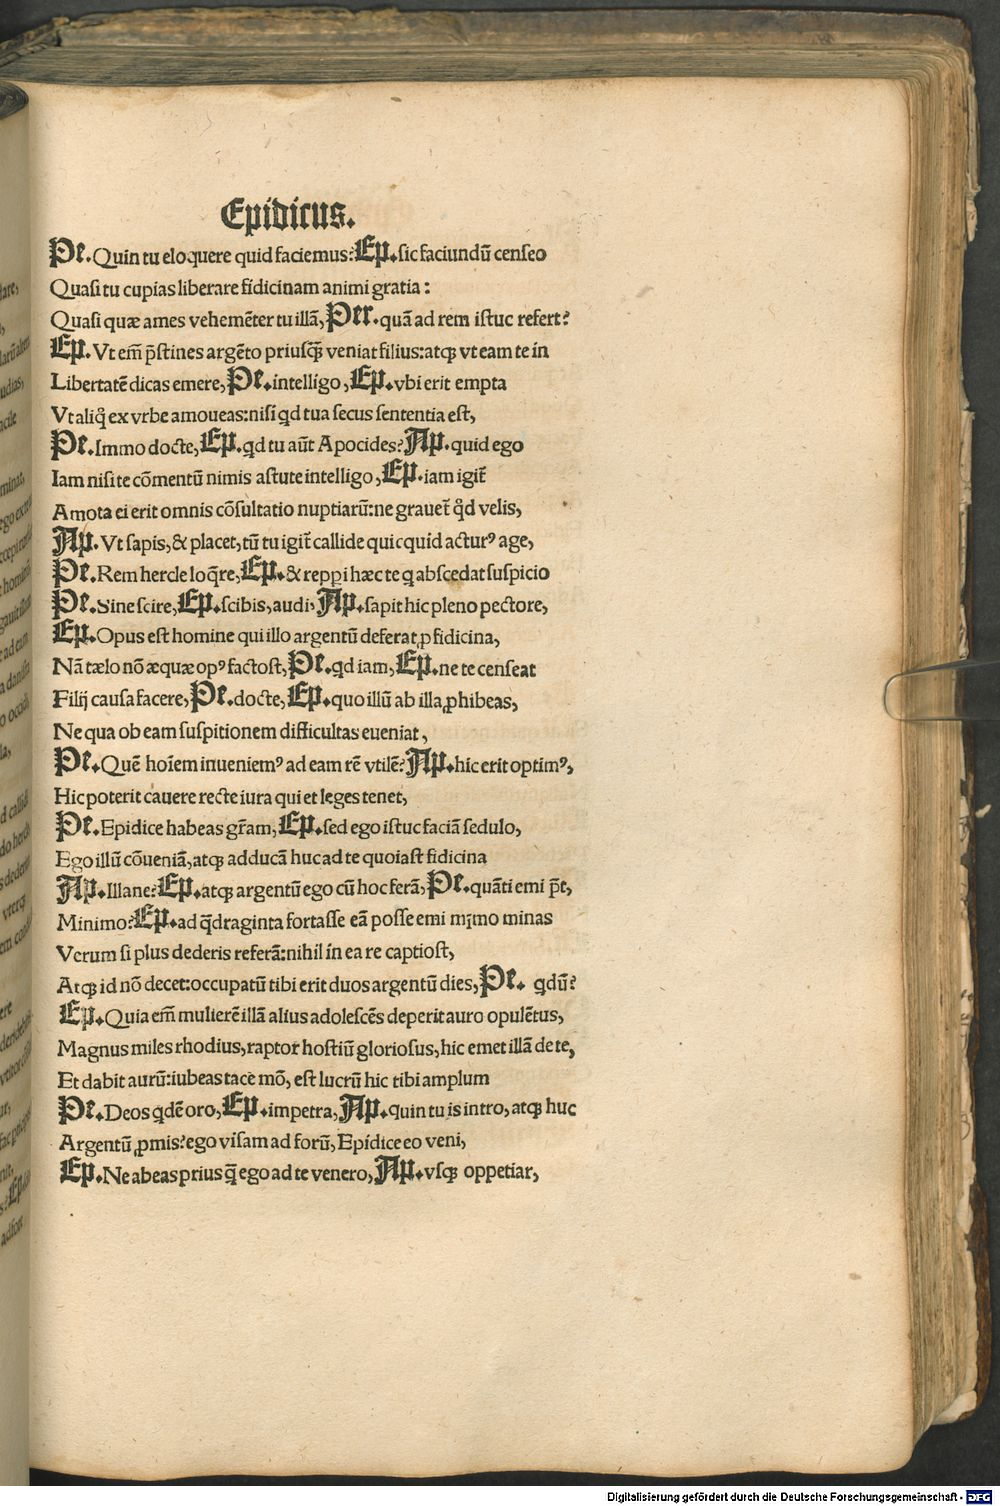 Epidicus.
Pe. Quin tu eloquere quid faciemus? Ep. sic faciundū censeo
Quasi tu cupias liberare fidicinam animi gratia:
Quasi quæ ames vehemēter tu illā, Per. quā ad rem istuc refert?
Ep. Vt em̄ p̄stines argēto priusq̄ veniat filius: atqꝫ vt eam te in
Libertatē dicas emere, Pe. intelligo, Ep. vbi erit empta
Vt aliq̄ ex vrbe amoueas: nisi qd tua secus sententia est,
Pe. Immo docte, Ep. qd tu aūt Apocides? Ap. quid ego
Iam nisi te cōmentū nimis astute intelligo, Ep. iam igit̄
Amota ei erit omnis cōsultatio nuptiarū: ne grauet̄ qd velis,
Ap. Vt sapis, & placet, tū tu igit̄ callide quicquid acturꝰ age,
Pe. Rem hercle loq̄re, Ep. & repperi hæc te q abscedat suspicio
Pe. Sine scire, Ep. scibis, audi, Ap. sapit hic pleno pectore,
Ep. Opus est homine qui illo argentū deferat ꝓ fidicina,
Nā tælo nō æquæ opꝰ factost, Pe. qd iam, Ep. ne te censeat
Filij causa facere, Pe. docte, Ep. quo illū ab illa ꝓhibeas,
Ne qua ob eam suspitionem difficultas eueniat,
Pe. Quē hoīem inueniemꝰ ad eam rē vtilē? Ap. hic erit optimꝰ,
Hic poterit cauere recte iura qui et leges tenet,
Pe. Epidice habeas gr̄am, Ep. sed ego istuc faciā sedulo,
Ego illū cōueniā, atqꝫ adducā huc ad te quoiast fidicina
Ap. Illane? Ep. atqꝫ argentū ego cū hoc ferā, Pe. quāti emi p̄t,
Minimo? Ep. ad q̄draginta fortasse eā posse emi mīmo minas
Verum si plus dederis referā: nihil in ea re captiost,
Atqꝫ id nō decet: occupatū tibi erit duos argentū dies, Pe. qdū?
Ep. Quia em̄ mulierē illā alius adolescēs deperit auro opulētus,
Magnus miles rhodius, raptor hostiū gloriosus, hic emet illā de te,
Et dabit aurū: iubeas tace mō, est lucrū hic tibi amplum
Pe. Deos qdē oro, Ep. impetra, Ap. quin tu is intro, atqꝫ huc
Argentū ꝓmis? ego visam ad forū, Epidice eo veni,
Ep. Ne abeas prius q̄ ego ad te venero, Ap. vsqꝫ oppetiar,
Digitalisierung gefördert durch die Deutsche Forschungsgemeinschaft - DFG